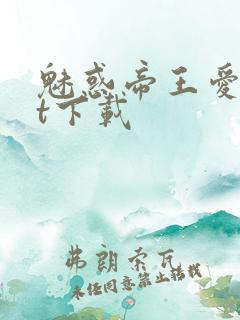 魅惑帝王爱
t下载
弗朗索瓦
未经同意禁止转载